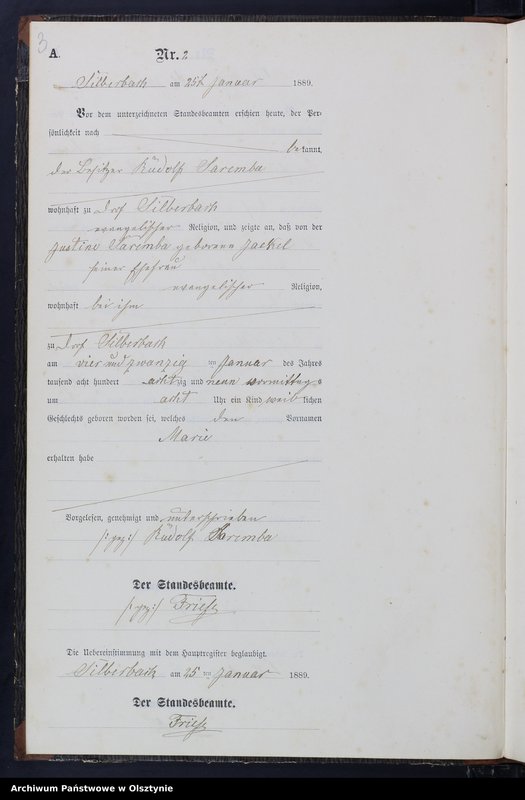 3
A.
Nr. 2
Silberbach am 25t Januar 1889.
Vor dem unterzeichneten Standesbeamten erschien heute, der Per-
sönlichkeit nach
bekannt,
der Besitzer Rudolf Saremba
wohnhaft zu Dorf Silberbach
evangelischer Religion, und zeigte an, daß von der
Justine Saremba geborene Jackel
seiner Ehefrau
evangelischer Religion,
wohnhaft bei ihm
zu Dorf Silberbach
am vier und zwanzig ten Januar des Jahres
tausend acht hundert achtzig und neun vormittags
um acht Uhr ein Kind weiblichen
Geschlechts geboren worden sei, welches den Vornamen
Marie
erhalten habe
Vorgelesen, genehmigt und unterschrieben
/: gez :/ Rudolf Saremba
Der Standesbeamte.
/: gez :/
Die Uebereinstimmung mit dem Hauptregister beglaubigt.
Silberbach am 25 ten Januar 1889.
Der Standesbeamte.
Archiwum Państwowe w Olsztynie